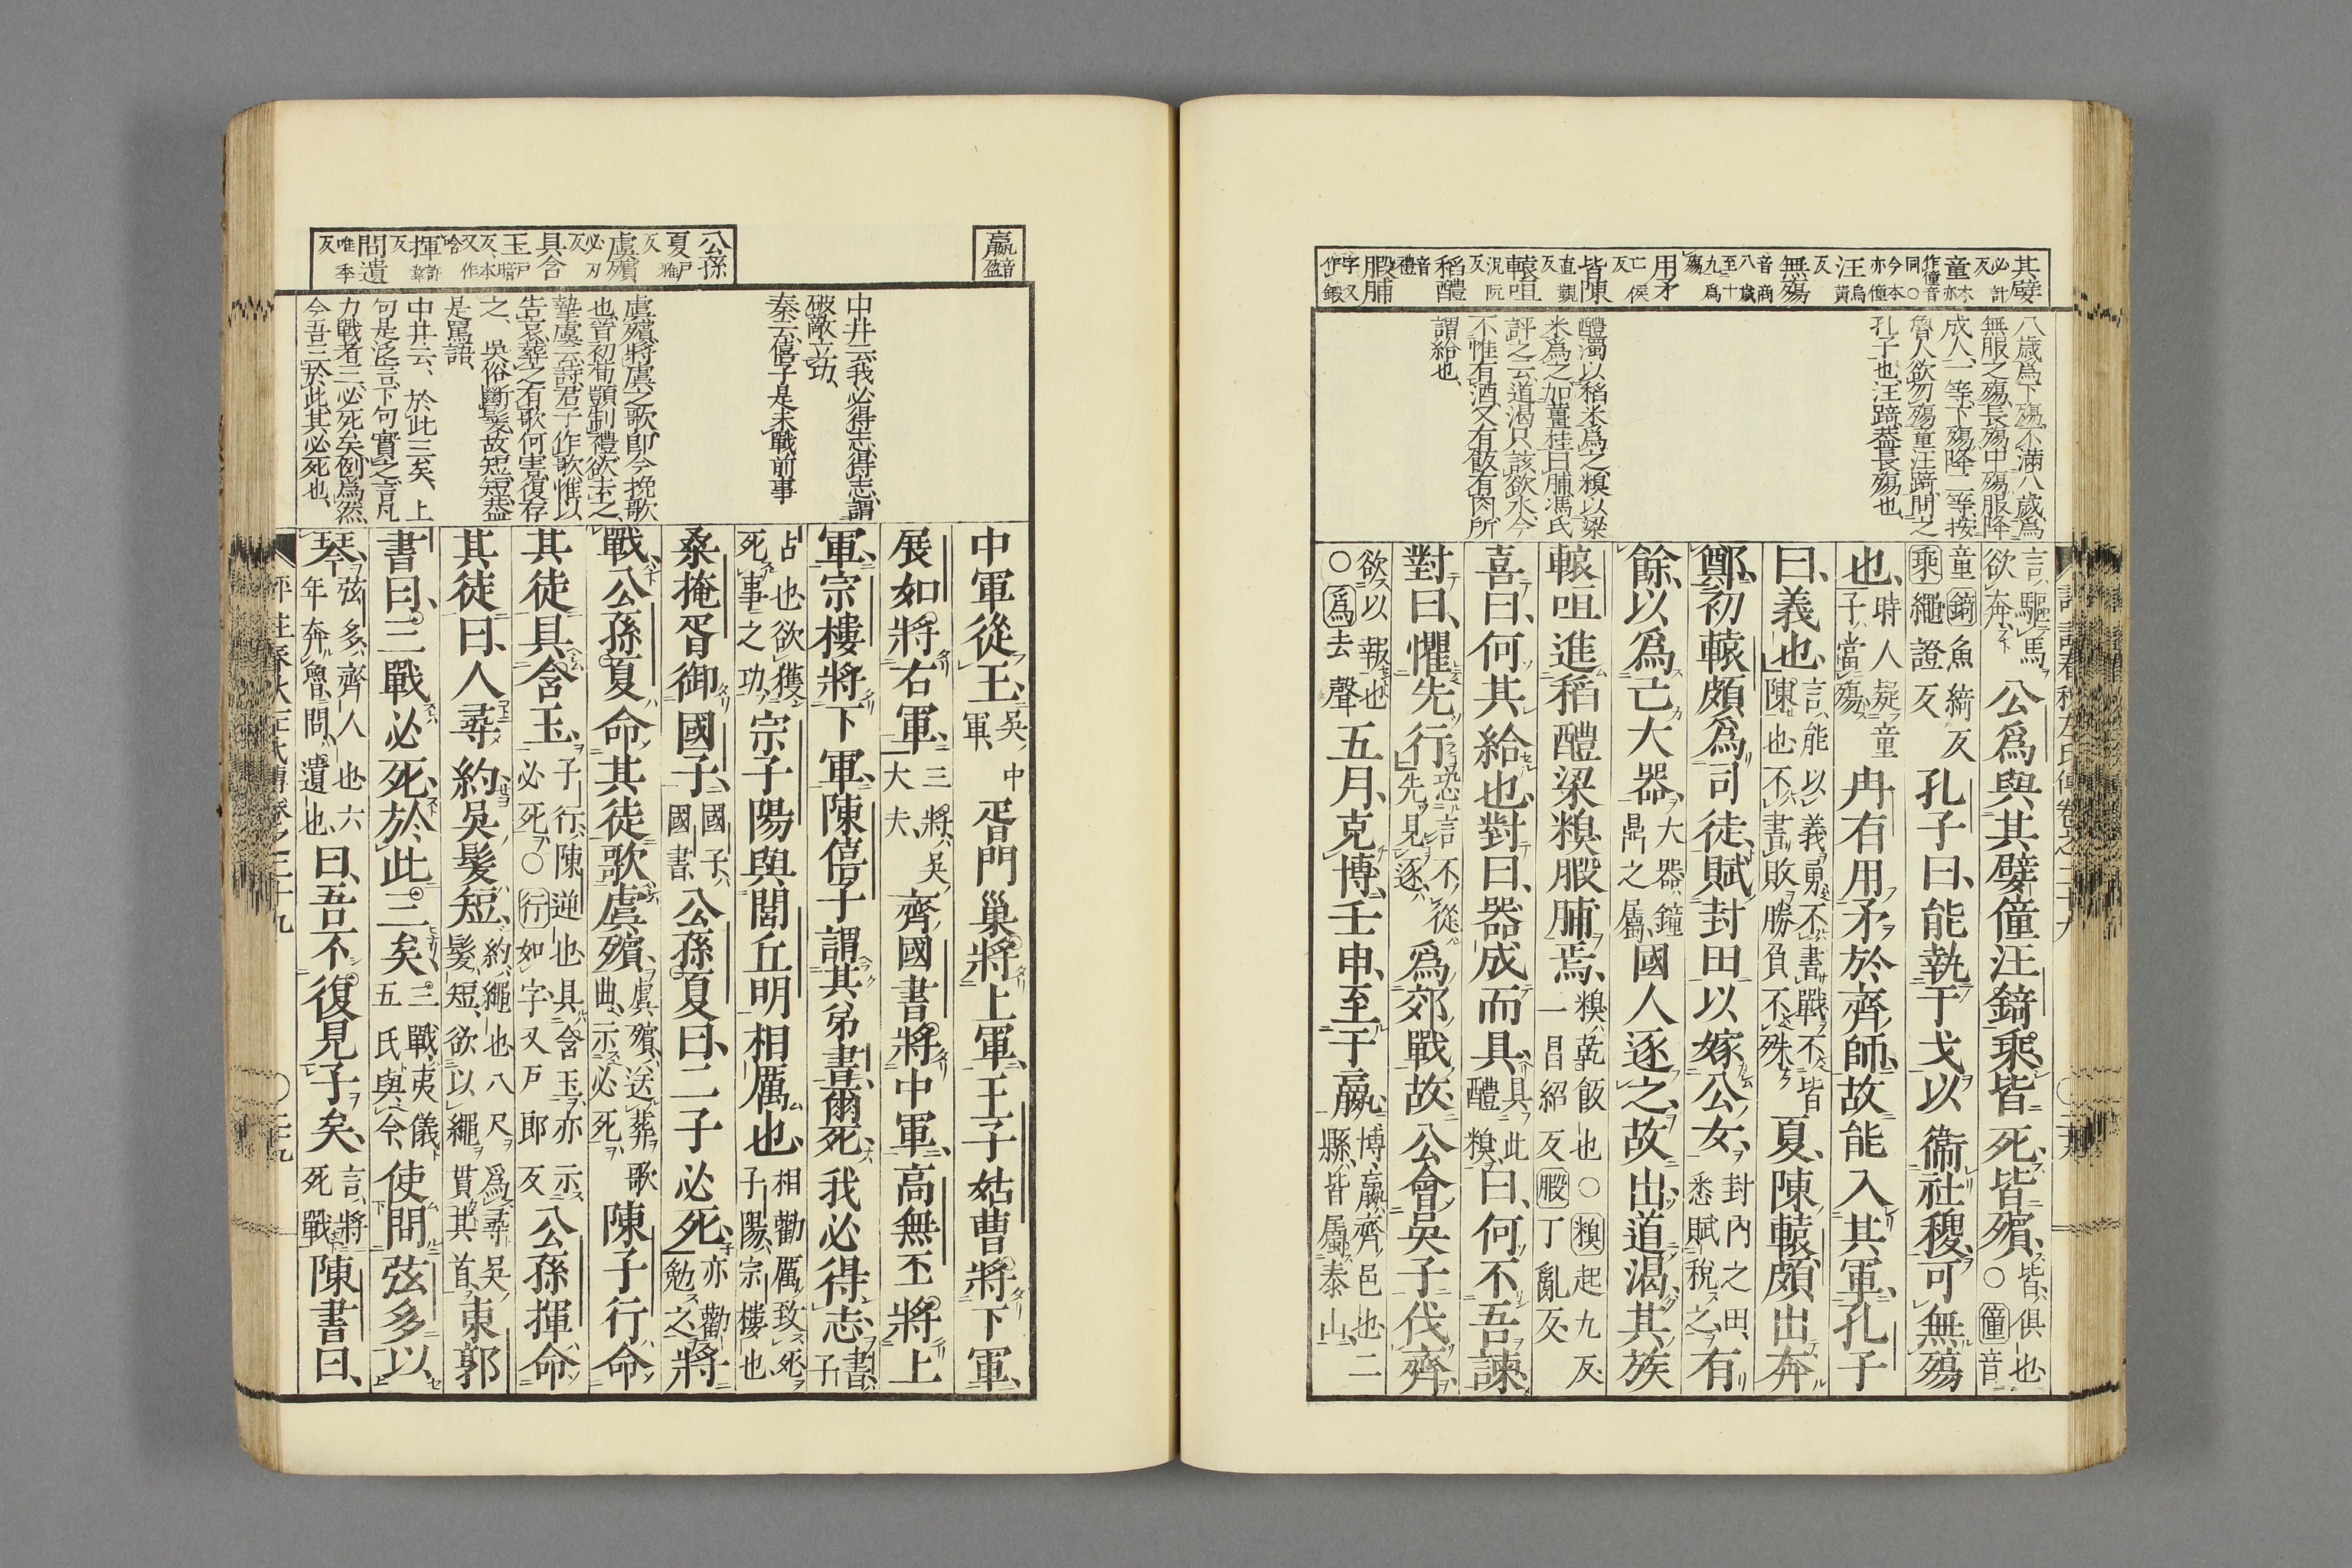 其嬖必計反童本亦作僮音同○今本亦僮汪烏黃反無殤音商八歲至十九爲殤用矛亡侯反皆陳直覲反轅咺況阮反稻醴音禮腶脯字又作鍛
八歲爲下殤、不滿八歲爲
無服之殤、長殤中殤服降
成人一等、下殤降二等、按
魯人欲勿殤童汪踦、問之
孔子也、汪踦蓋長殤也、
醴濁以稻米爲之糗以粱
米爲之加薑桂曰脯馮氏
評之云、道渴只該飲水、今
不惟有酒、又有飯有肉、所
謂給也、
言、驅馬欲奔、公爲與其嬖僮汪錡乘、皆死、皆殯、皆、俱也、○僮音
童錡魚綺反乘繩證反孔子曰、能執干戈以衞社稷、可無殤
也、時人疑童子當殤冉有用矛於齊師、故能入其軍、孔子
曰、義也、言、能以義勇、不書戰、不皆陳也、不書敗、勝負不殊夏、陳轅頗出奔
鄭、初轅頗爲司徒、賦封田以嫁公女、封內之田、悉賦稅之有
餘、以爲己大器、大器、鐘鼎之屬國人逐之、故出、道渴、其族
轅咺進稻醴粱糗腶脯焉、糗、乾飯也○糗起九反、一昌紹反腶丁亂反、
喜曰、何其給也、對曰、器成而具、具此醴糗曰、何不吾諫、
對曰、懼先行、恐言不從、先見逐、爲郊戰故、公會吳子伐齊、
欲以報也○爲去聲五月、克博、壬申、至于嬴、博、嬴、齊邑也、二縣、皆屬泰山、
嬴音盈
公孫夏戶雅反虞殯必刃反具含玉戶暗反、本又作唅揮許韋反問遺唯季反
中井云、我必得志、得志、謂
破敵立功、
秦云、僖子是未戰前事
虞殯、將虞之歌、卽今挽歌
也、晉初荀顗制禮、欲去之、
摯虞云、詩君子作歌、惟以
告哀、葬之有歌、何害、復存
之、吳俗斷髮、故短、短蓋
是罵語、
中井云、於此三矣、上
句是泛言、下句實之、言凡
力戰者三、必死矣、例爲然
今吾三於此、其必死也、
中軍從王、吳中軍、胥門巢將上軍、王子姑曹將下軍、
展如將右軍、三將、吳大夫、齊國書將中軍、高無㔻將上
軍、宗樓將下軍、陳僖子謂其弟書、爾死、我必得志、書、子
占也、欲獲死事之功、宗子陽與閭丘明相厲也、相勸厲致死、子陽、宗樓也、
桑掩胥御國子、國子、國書、公孫夏曰、二子必死、亦勸勉之將
戰、公孫夏命其徒歌虞殯、虞殯、送葬歌曲、示必死、陳子行命
其徒具含玉、子行、陳逆也、具含玉、亦示必死、○行如字又戶郎反公孫揮命
其徒曰、人尋約、吳髮短、約、繩也、八尺爲尋、吳髮短、欲以繩貫其首、東郭
書曰、三戰必死、於此三矣、三戰、夷儀、五氏、與今、使問弦多以
琴、弦多、齊人也、六年奔魯、問、遺也、曰、吾不復見子矣、言將死戰、陳書曰、